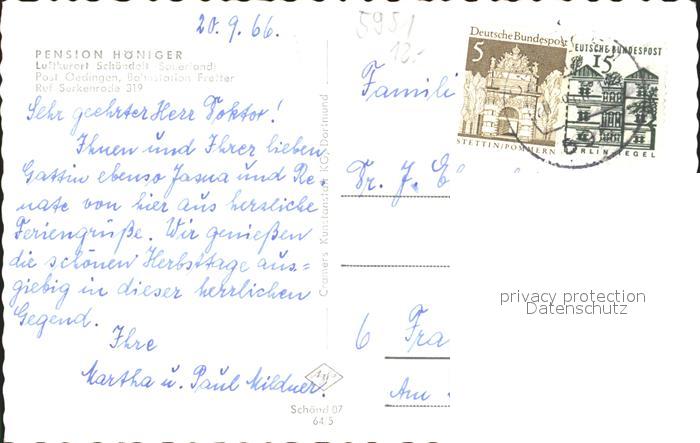 20. 9. 66.
5951
12.-
PENSION HÖNIGER
Luftkurort Schöndelt (Sauerland)
Post Oedingen, Bahnstation Fretter
Ruf Serkenrode 319
Sehr geehrter Herr Doktor!
Ihnen und Ihrer lieben
Gattin ebenso Jasna und Re-
nate von hier aus herzliche
Feriengrüße. Wir genießen
die schönen Herbsttage aus=
giebig in dieser herrlichen
Gegend.
Ihre
Martha u. Paul Mildner.
Schönd 07
64/5
Cramers Kunstanstalt KG, Dortmund
Deutsche Bundespost
5
STETTIN/POMMERN
DEUTSCHE BUNDESPOST
15
BERLIN TEGEL
Famili
Dr. J.
6 Fra
Am
privacy protection
Datenschutz